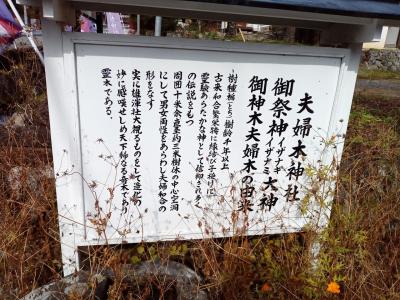 夫婦木神社
御祭神イザナギイザナミ大神
御神木夫婦木の由来
樹種栃(とち)樹齢千年以上
古来和合繁栄特に縁結び子授けに
霊験あらたかな神として信仰され多く
の伝説をもつ
周囲十米余直茎約三米樹体の中心空洞
にして男女両性をあらわし夫婦和合の
形をなす
実に雄渾壮大観るものをして造化の
妙に感嘆せしめ天下稀なる奇木であり
霊木である。